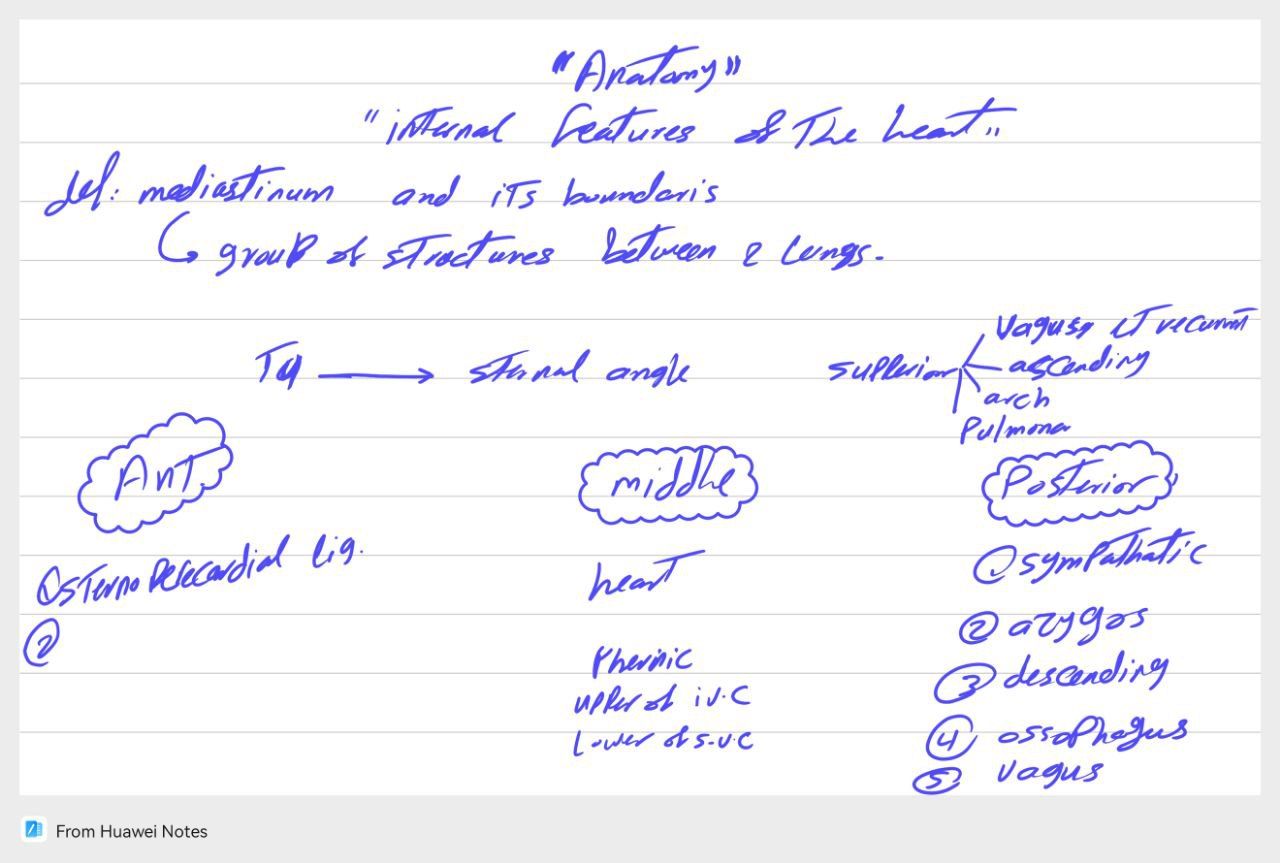 "Anatomy"
"internal features of The heart"
def: mediastinum and iTs boundaris
group of structures between 2 lungs.
T4 → sternal angle
superior
Vagus, LT recurrent
ascending
arch
Pulmona
Ant.
middle
Posterior
① sterno Pericardial lig.
②
heart
Phernic
upper of i.v.c
Lower of s.v.c
① sympathatic
② azygos
③ descending
④ ossophagus
⑤ vagus
From Huawei Notes